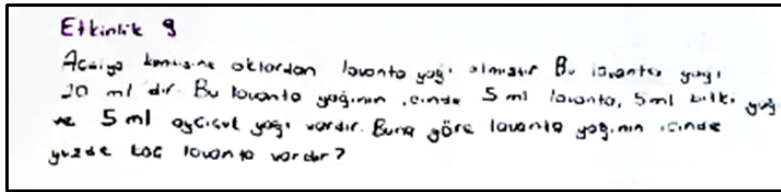 Etkinlik 9
Asiye kendisine aktardan lavanta yağı almıştır Bu lavanta yağı
20 ml dir. Bu lavanta yağının içinde 5 ml lavanta, 5 ml bitki yağı
ve 5 ml ayçiçek yağı vardır. Buna göre lavanta yağının içinde
yüzde kaç lavanta vardır?